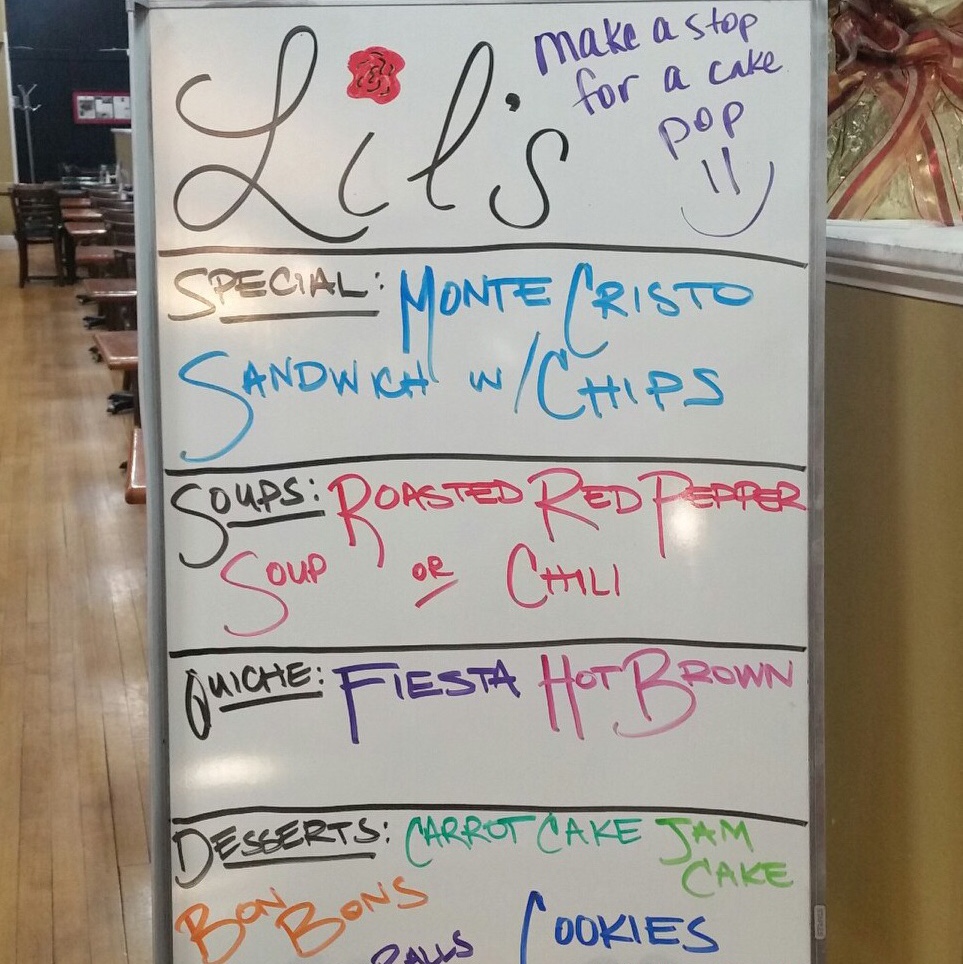 Lil's
make a stop
for a cake
pop
SPECIAL: MONTE CRISTO
SANDWICH w/ CHIPS
SOUPS: ROASTED RED PEPPER
SOUP OR CHILI
QUICHE: FIESTA HOT BROWN
DESSERTS: CARROT CAKE JAM
CAKE
BON BONS
BALLS COOKIES